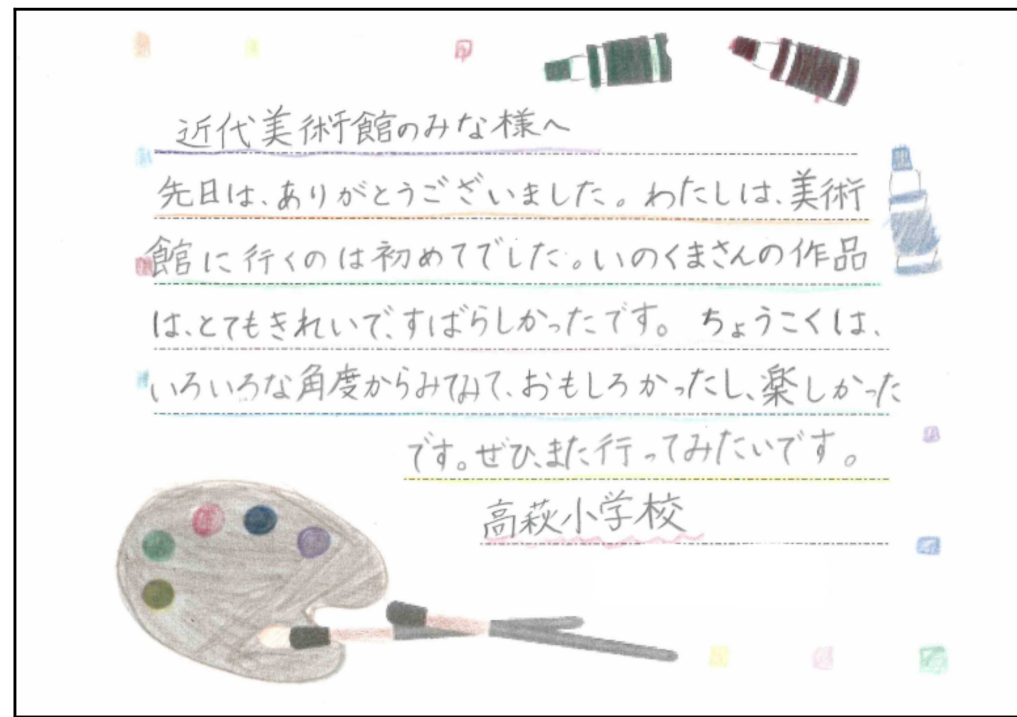 近代美術館のみな様へ
先日は、ありがとうございました。わたしは、美術
館に行くのは初めてでした。いのくまさんの作品
は、とてもきれいで、すばらしかったです。ちょうこくは、
いろいろな角度からみてみて、おもしろかったし、楽しかった
です。ぜひ、また行ってみたいです。
高萩小学校